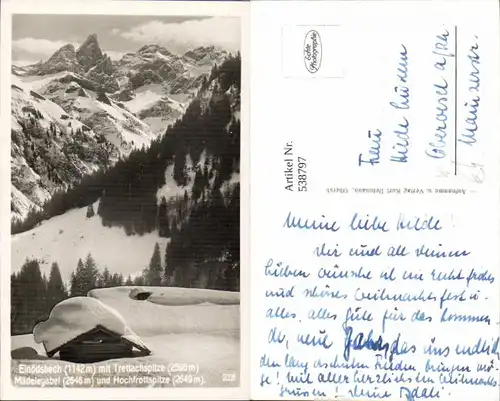 Einödsbach (1142m) mit Trettachspitze (2596m)
Mädelegabel (2646m) und Hochfrottspitze (2649m).
Echte Photographie
Artikel Nr.
538797
Frau
Hilde
Oberwesel a/Rh.
Mainzerstr.
Aufnahme u. Verlag Kurt
Meine liebe Hilde!
Dir und all deinen
Lieben wünsche ich ein recht frohes
und schönes Weihnachtsfest u.
alles, alles gute für das kommen-
de, neue Jahr, das uns endlich
den lang ersehnten Frieden bringen mö-
ge! Mit allerherzlichsten Weihnachts-
grüssen! Deine